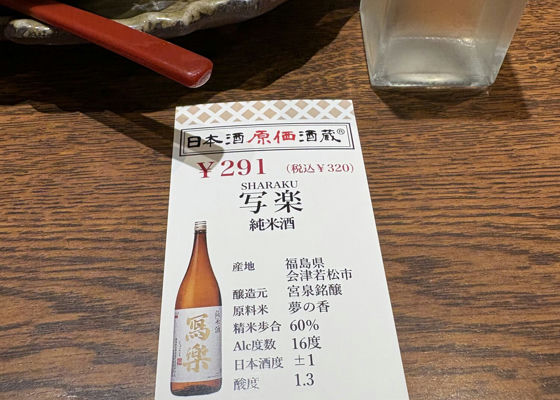 日本酒原価酒蔵®
￥291 (税込￥320)
SHARAKU
写楽
純米酒
産地 福島県
会津若松市
醸造元 宮泉銘醸
原料米 夢の香
精米歩合 60%
Alc度数 16度
日本酒度 ±1
酸度 1.3
純米酒
寫楽